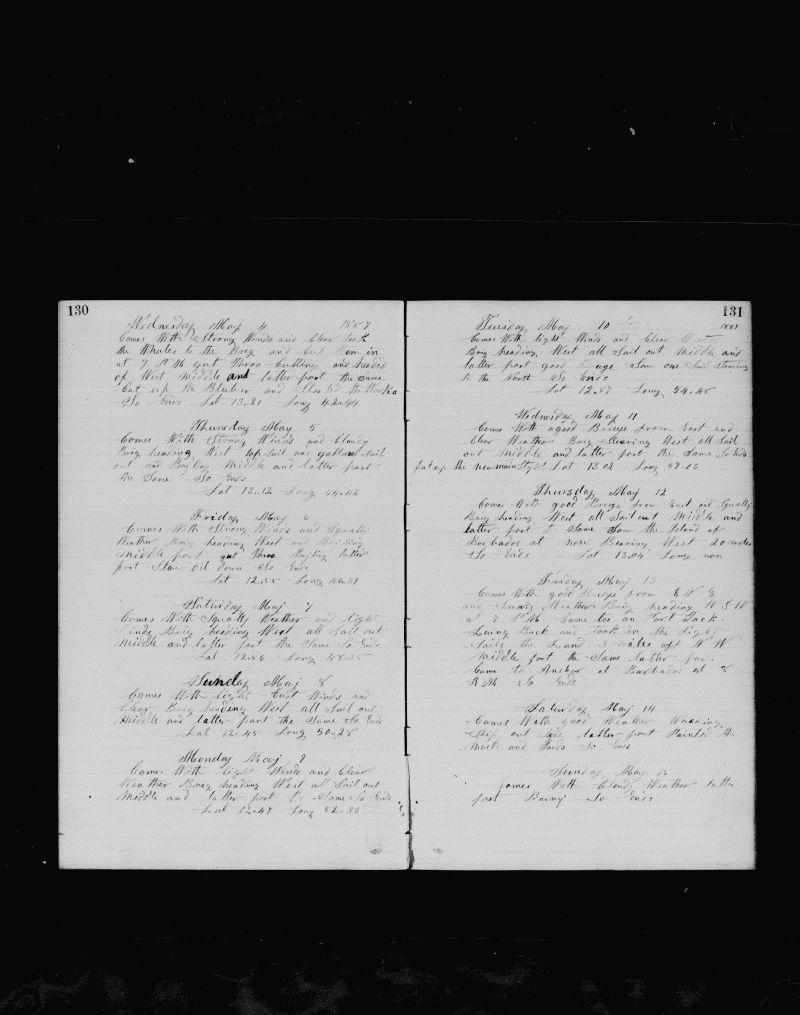 130
Wednesday May 4 1887
Comes With Strong Winds and Clear took
the Whales to the Brig and Cut them in
at 7 P M quit Three Cutting and headed
of West Middle and latter part the Same
Cut up the Blubber and
So Ends Lat 13.21 Long 42.44
Thursday May 5
Comes With Strong Winds and Cloudy
Brig heading West top Sail and gallant Sail
out and Boyling Middle and latter part
the Same So Ends
Lat 13.12 Long 44.48
Friday May 6
Comes With Strong Winds and Squally
Weather Brig heading West and Boyling
Middle part quit Three Boyling latter
part Stow Oil down So Ends
Lat 12.55 Long
Saturday May 7
Comes With Squally Weather and light
Winds Brig heading West all Sail out
Middle and latter part the Same So Ends
Lat 12.56 Long 48.35
Sunday May 8
Comes With light East Winds and
Clear Brig heading West all Sail out
Middle and latter part the Same So Ends
Lat 12.45 Long 50.28
Monday May 9
Comes With light Winds and Clear
Weather Brig heading West all Sail out
Middle and latter part the Same So Ends
Lat 12.47 Long 52.33
131
Tuesday May 10 1887
Comes With light Winds and Clear
Brig heading West all Sail out Middle and
latter part good Saw one Sail Stearing
to the North So Ends
Lat 12.57 Long 54.48
Wednesday May 11
Comes With a good Breeze from East and
Clear Weather Brig Stearing West all Sail
out Middle and latter part the Same So Ends
put up the new main Lat 13.02 Long 57.06
Thursday May 12
Comes With good Breeze from East and Squally
Brig heading West all Sail out Middle and
latter part the Same Saw the Island of
Barbados at noon Bearing West 20 miles
So Ends Lat 13.04 Long non
Friday May 13
Comes With good Breeze from E N E
and Weather Brig heading W S W
at 7 P M Came too on Port Tack
Luing Back and Took in the light
Sails the Land 3 miles off N W
Middle part the Same latter part
Came to Anchor at Barbados at 8
A M So Ends
Saturday May 14
Comes With good Weather
Ship out Side latter part Painted the
and Yards So Ends
Sunday May 15
Comes With Cloudy Weather latter
part Rainy So Ends